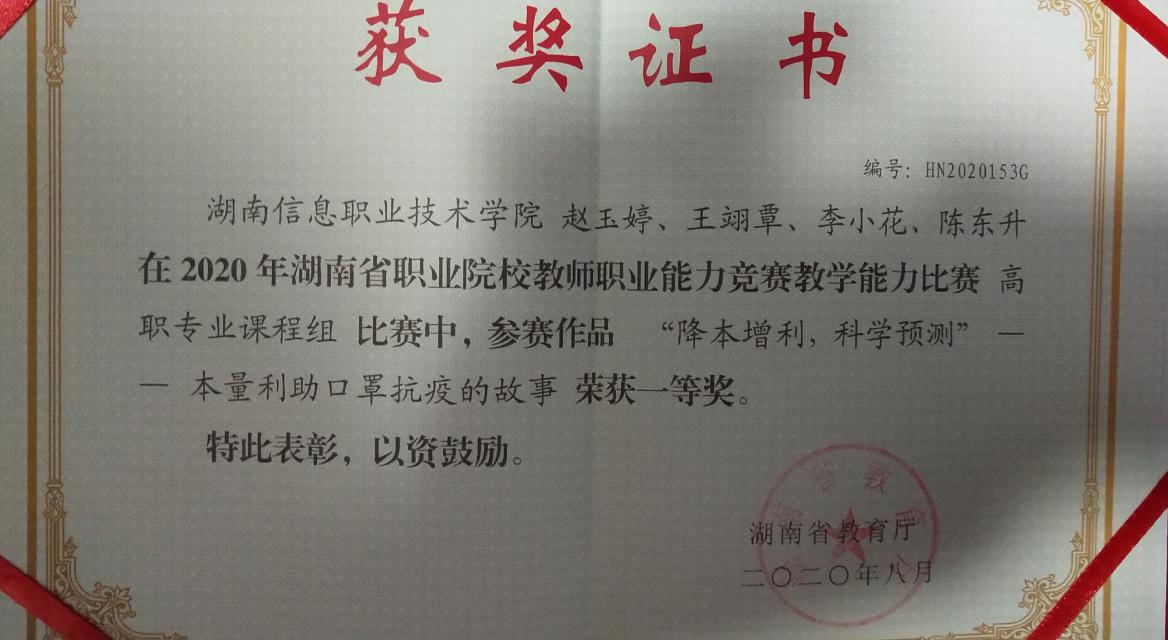 获奖证书
编号：HN2020153G
湖南信息职业技术学院 赵玉婷、王翊覃、李小花、陈东升
在2020年湖南省职业院校教师职业能力竞赛教学能力比赛 高
职专业课程组 比赛中，参赛作品 “降本增利，科学预测” —
— 本量利助口罩抗疫的故事 荣获一等奖。
特此表彰，以资鼓励。
湖南省教育厅
二〇二〇年八月